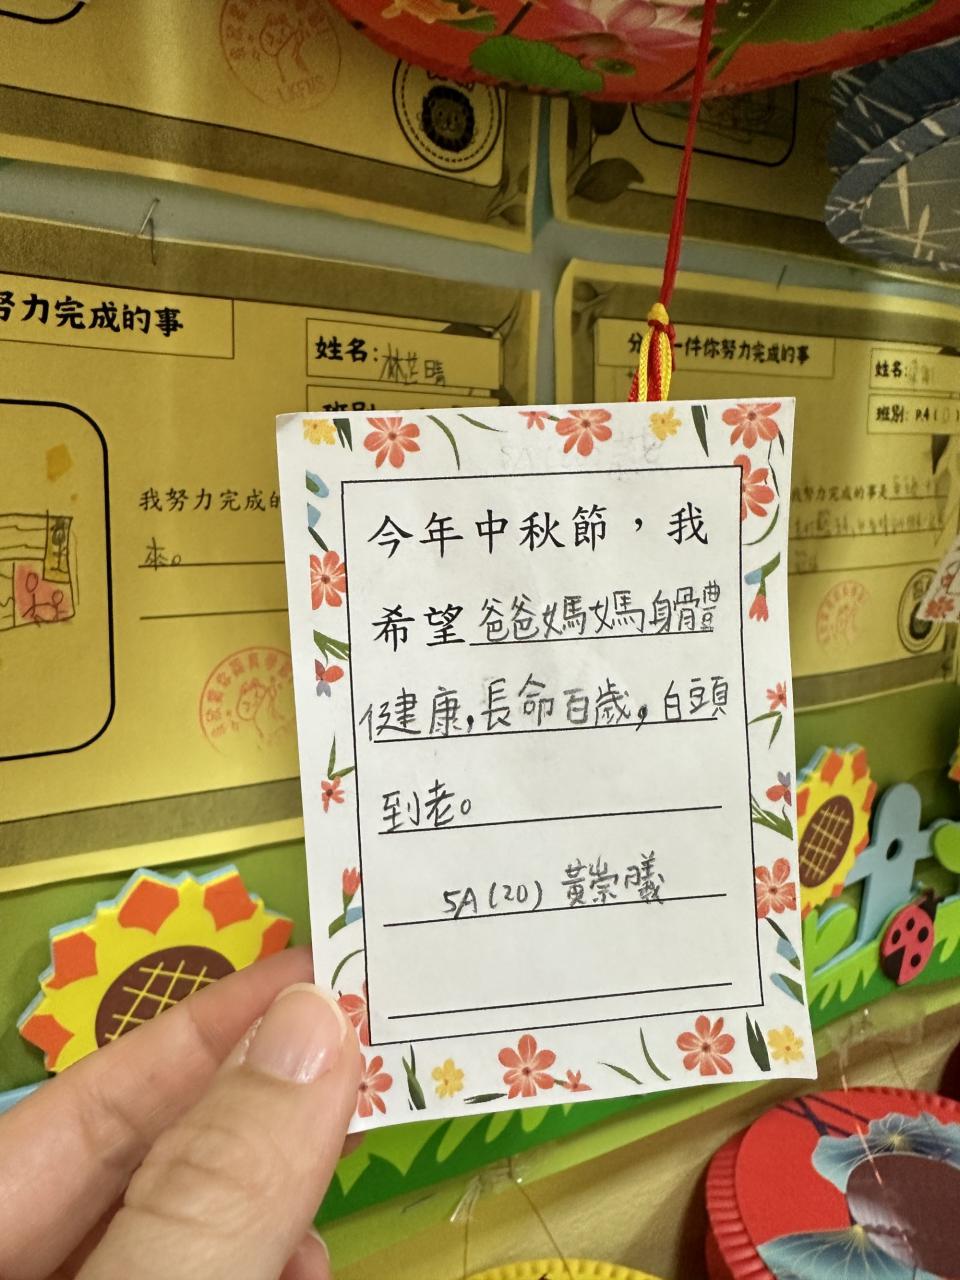 努力完成的事
姓名：林芷晴
班別：
我努力完成的
來。
分
一件你努力完成的事
姓名：
班別：P.4（
我努力完成的事是
今年中秋節，我
希望爸爸媽媽身體
健康，長命百歲，白頭
到老。
5A(20) 黃崇曦